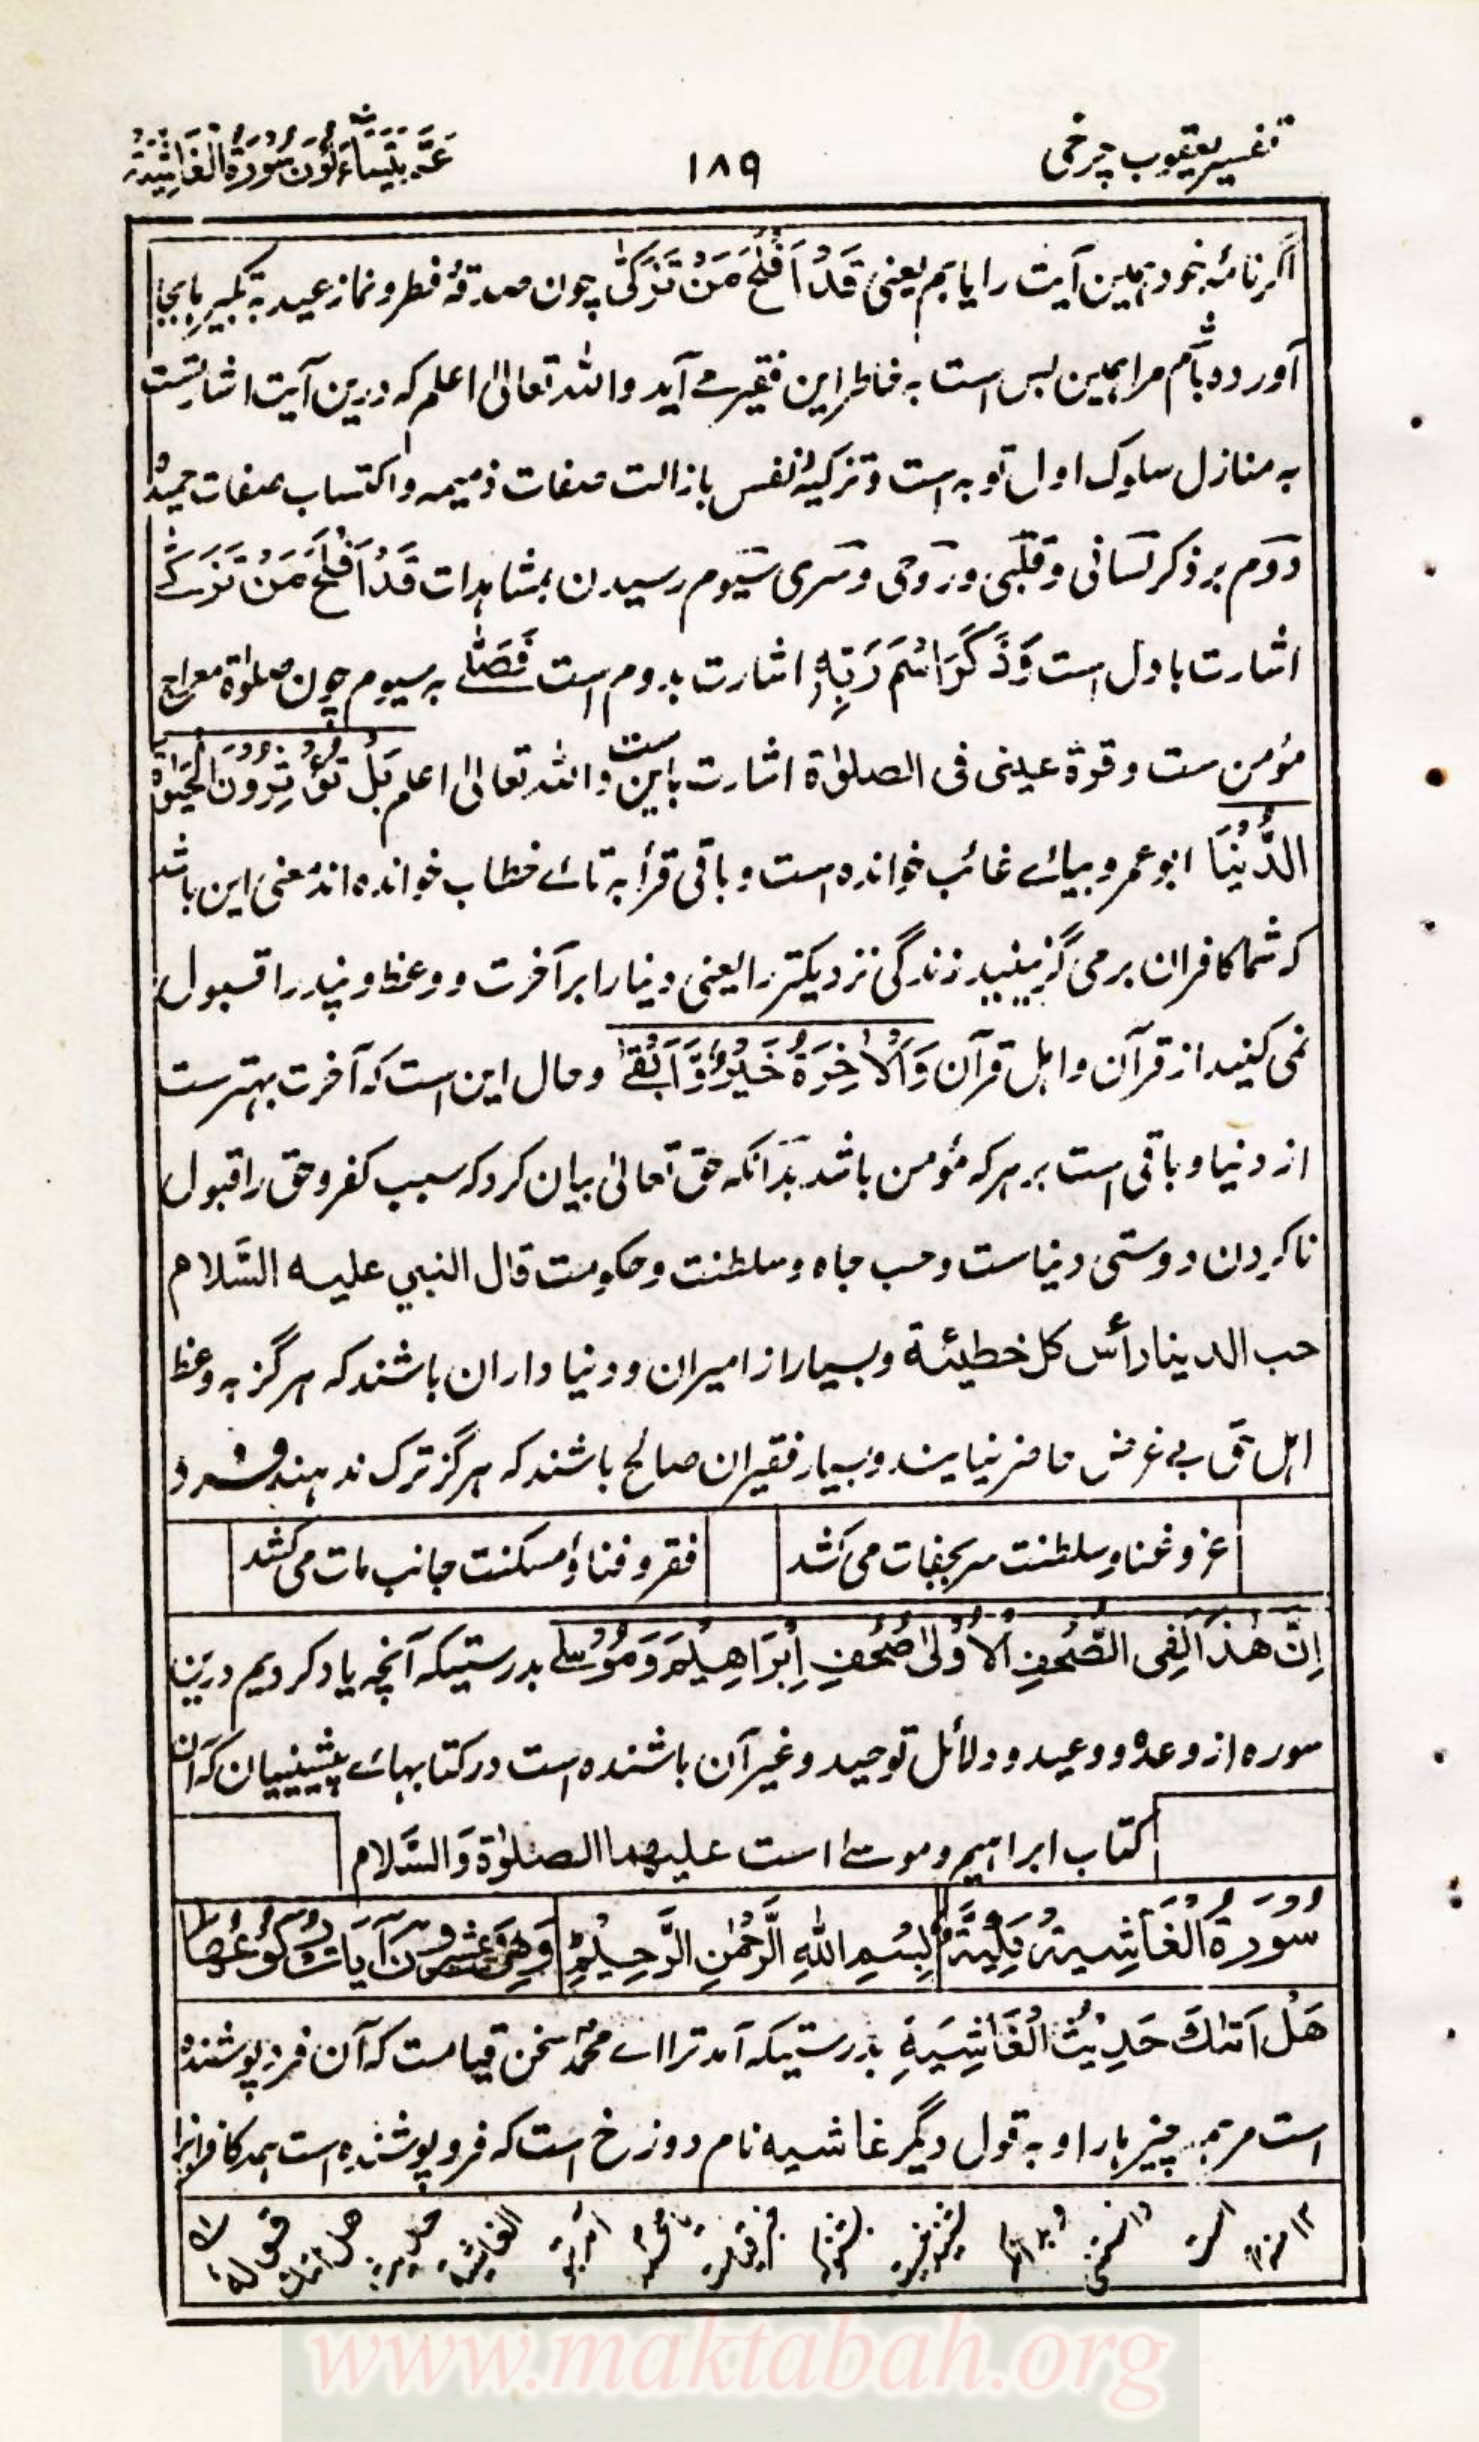 تفسیر یعقوب چرخی
۱۸۹
عَمَّ يَتَسَاءَلُونَ سُورَةُ الْغَاشِيَةِ
اگر نامۂ خود همین آیت را یابم یعنی قَدْ اَفْلَحَ مَنْ تَزَكّٰى چون صدقۂ فطر و نماز عید به تکبیر بجا
آورده باشم مرا همین بس است به خاطر این فقیر مے آید واللہ تعالیٰ اعلم که درین آیت اشارتست
به منازل سلوک اول توبه است و تزکیۂ نفس بازالت صفات ذمیمه و اکتساب صفات حمیده
دوم بر ذکر لسانی و قلبی و روحی و سری سیوم رسیدن بمشاہدات قَدْ اَفْلَحَ مَنْ تَزَكّٰے
اشارت باول است وَذَكَرَ اسْمَ رَبِّهٖ اشارت بدوم است فَصَلّٰے به سیوم چون صلوٰة معراج
مؤمن ست و قرة عینی فی الصلوٰة اشارت باین ست واللہ تعالیٰ اعلم بَلْ تُؤْثِرُوْنَ الْحَيٰوةَ
الدُّنْيَا ابو عمرو بیائے غائب خوانده است و باقی قرأ به تائے خطاب خوانده اند معنی این باشد
که شما کافران برمی گزینید زندگی نزدیکتر را یعنی دنیا را بر آخرت و وعظ و پند را قبول
نمی کنید از قرآن و اہل قرآن وَالْاٰخِرَةُ خَيْرٌ وَّاَبْقٰے و حال این است که آخرت بہتر ست
از دنیا و باقی است بر ہر که مؤمن باشد بدانکه حق تعالیٰ بیان کرد که سبب کفر و حق را قبول
ناکردن دوستی دنیاست و حب جاه و سلطنت و حکومت قال النبی علیه السَّلام
حب الدینا رأس کل خطیئة و بسیار از امیران و دنیا داران باشند که ہرگز به وعظ
اہل حق بے غرض حاضر نیایند و بسیار فقیران صالح باشند که ہرگز ترک ندہند فرد
عز و غنا و سلطنت سر بجفات می کشد
فقر و فنا و مسکنت جانب مات می کشد
اِنَّ هٰذَا لَفِى الصُّحُفِ الْاُوْلٰى صُحُفِ اِبْرَاهِيْمَ وَمُوْسٰے بدرستیکه آنچه یاد کردیم درین
سوره از وعده و وعید و دلائل توحید و غیر آن باشنده است در کتابہائے پیشینیان که آن
کتاب ابراہیم و موسےٰ است علیهما الصلوٰة وَالسَّلام
سُوْرَةُ الْغَاشِيَةِ مَكِّيَّةٌ
بِسْمِ اللّٰهِ الرَّحْمٰنِ الرَّحِيْمِ
وَهِىَ عِشْرُوْنَ آيَاتٌ رُكُوْعُهَا
هَلْ اَتٰىكَ حَدِيْثُ الْغَاشِيَةِ بدرستیکه آمد ترا اے محمد سخن قیامت که آن فرو پوشنده
است مر ہمه چیز ہا را و به قول دیگر غاشیه نام دوزخ است که فرو پوشنده است ہمه کافرانرا
قوله هل اتىك حديث الغاشية
www.maktabah.org